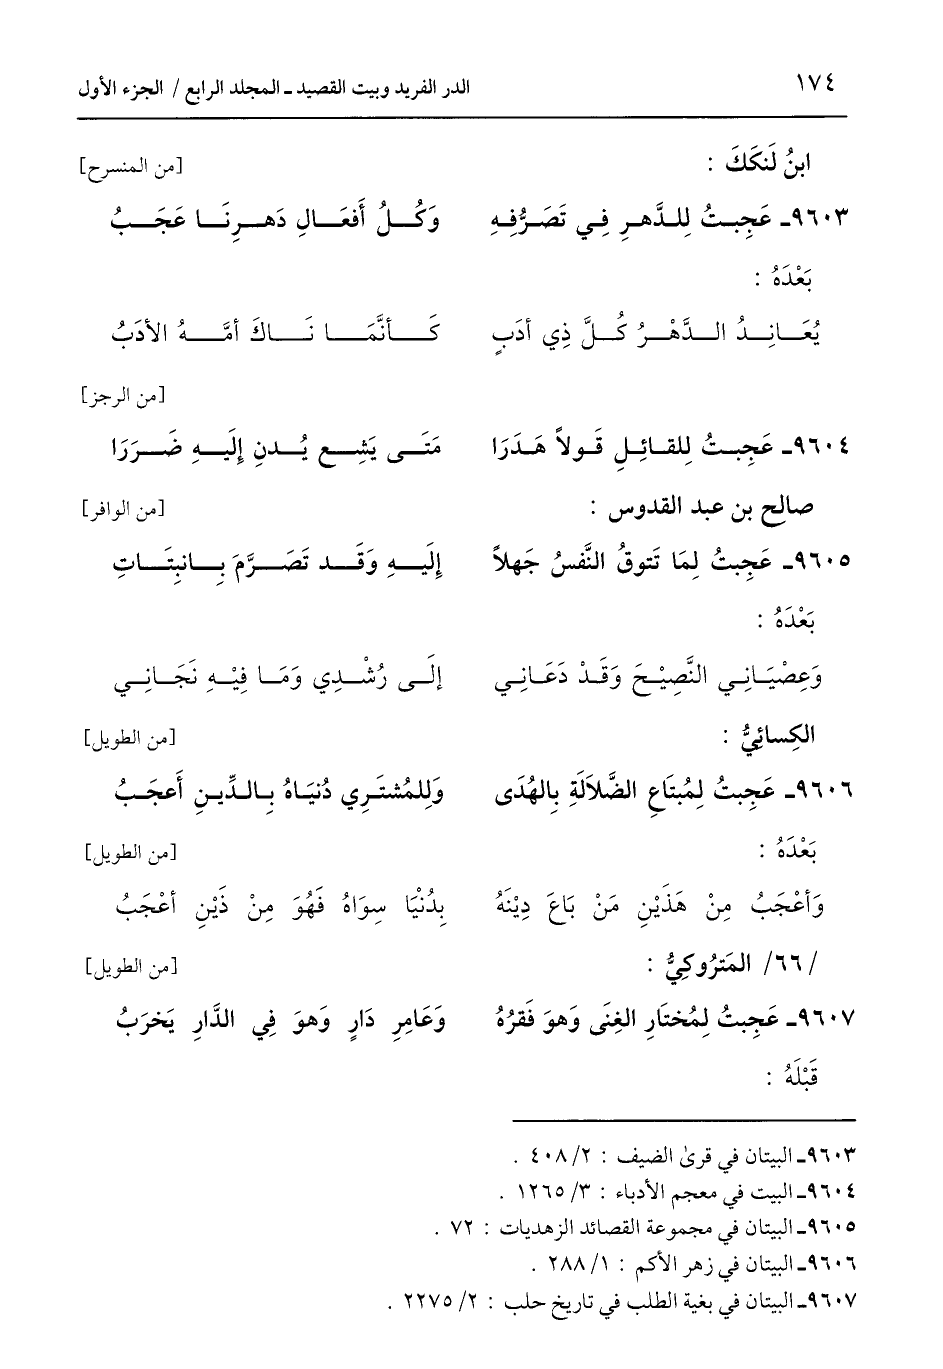 ١٧٤ الدر الفريد وبيت القصيد ـ المجلد الرابع / الجزء الأول
ابنُ لَنكَكَ : [من المنسرح]
٩٦٠٣ـ عَجِبتُ لِلدَّهرِ فِي تَصَرُّفِهِ وَكُلُ أَفعَالِ دَهرِنَا عَجَبُ
بَعْدَهُ :
يُعَانِدُ الدَّهْرُ كُلَّ ذِي أدَبٍ كَأنَّمَا نَاكَ أمَّهُ الأدَبُ
[من الرجز]
٩٦٠٤ـ عَجِبتُ لِلقائِلِ قَولاً هَدَرَا مَتَى يَشِع يُدنِ إِلَيهِ ضَرَرَا
صالح بن عبد القدوس : [من الوافر]
٩٦٠٥ـ عَجِبتُ لِمَا تَتوقُ النَّفسُ جَهلاً إِلَيهِ وَقَد تَصَرَّمَ بِانبِتَاتِ
بَعْدَهُ :
وَعِصْيَانِي النَّصِيْحَ وَقَدْ دَعَانِي إلَى رُشْدِي وَمَا فِيْهِ نَجَانِي
الكِسائِيُّ : [من الطويل]
٩٦٠٦ـ عَجِبتُ لِمُبتَاعِ الضَّلَالَةِ بِالهُدَى وَلِلمُشتَرِي دُنيَاهُ بِالدِّينِ أَعجَبُ
بَعْدَهُ : [من الطويل]
وَأعْجَبُ مِنْ هَذَيْنِ مَنْ بَاعَ دِيْنَهُ بِدُنْيَا سِوَاهُ فَهُوَ مِنْ ذَيْنِ أعْجَبُ
/٦٦/ المَترُوكِيُّ : [من الطويل]
٩٦٠٧ـ عَجِبتُ لِمُختَارِ الغِنَى وَهوَ فَقرُهُ وَعَامِرِ دَارٍ وَهوَ فِي الدَّارِ يَخرَبُ
قَبْلَهُ :
٩٦٠٣ـ البيتان في قرى الضيف : ٢/ ٤٠٨ .
٩٦٠٤ـ البيت في معجم الأدباء : ٣/ ١٢٦٥ .
٩٦٠٥ـ البيتان في مجموعة القصائد الزهديات : ٧٢ .
٩٦٠٦ـ البيتان في زهر الأكم : ١/ ٢٨٨ .
٩٦٠٧ـ البيتان في بغية الطلب في تاريخ حلب : ٢/ ٢٢٧٥ .